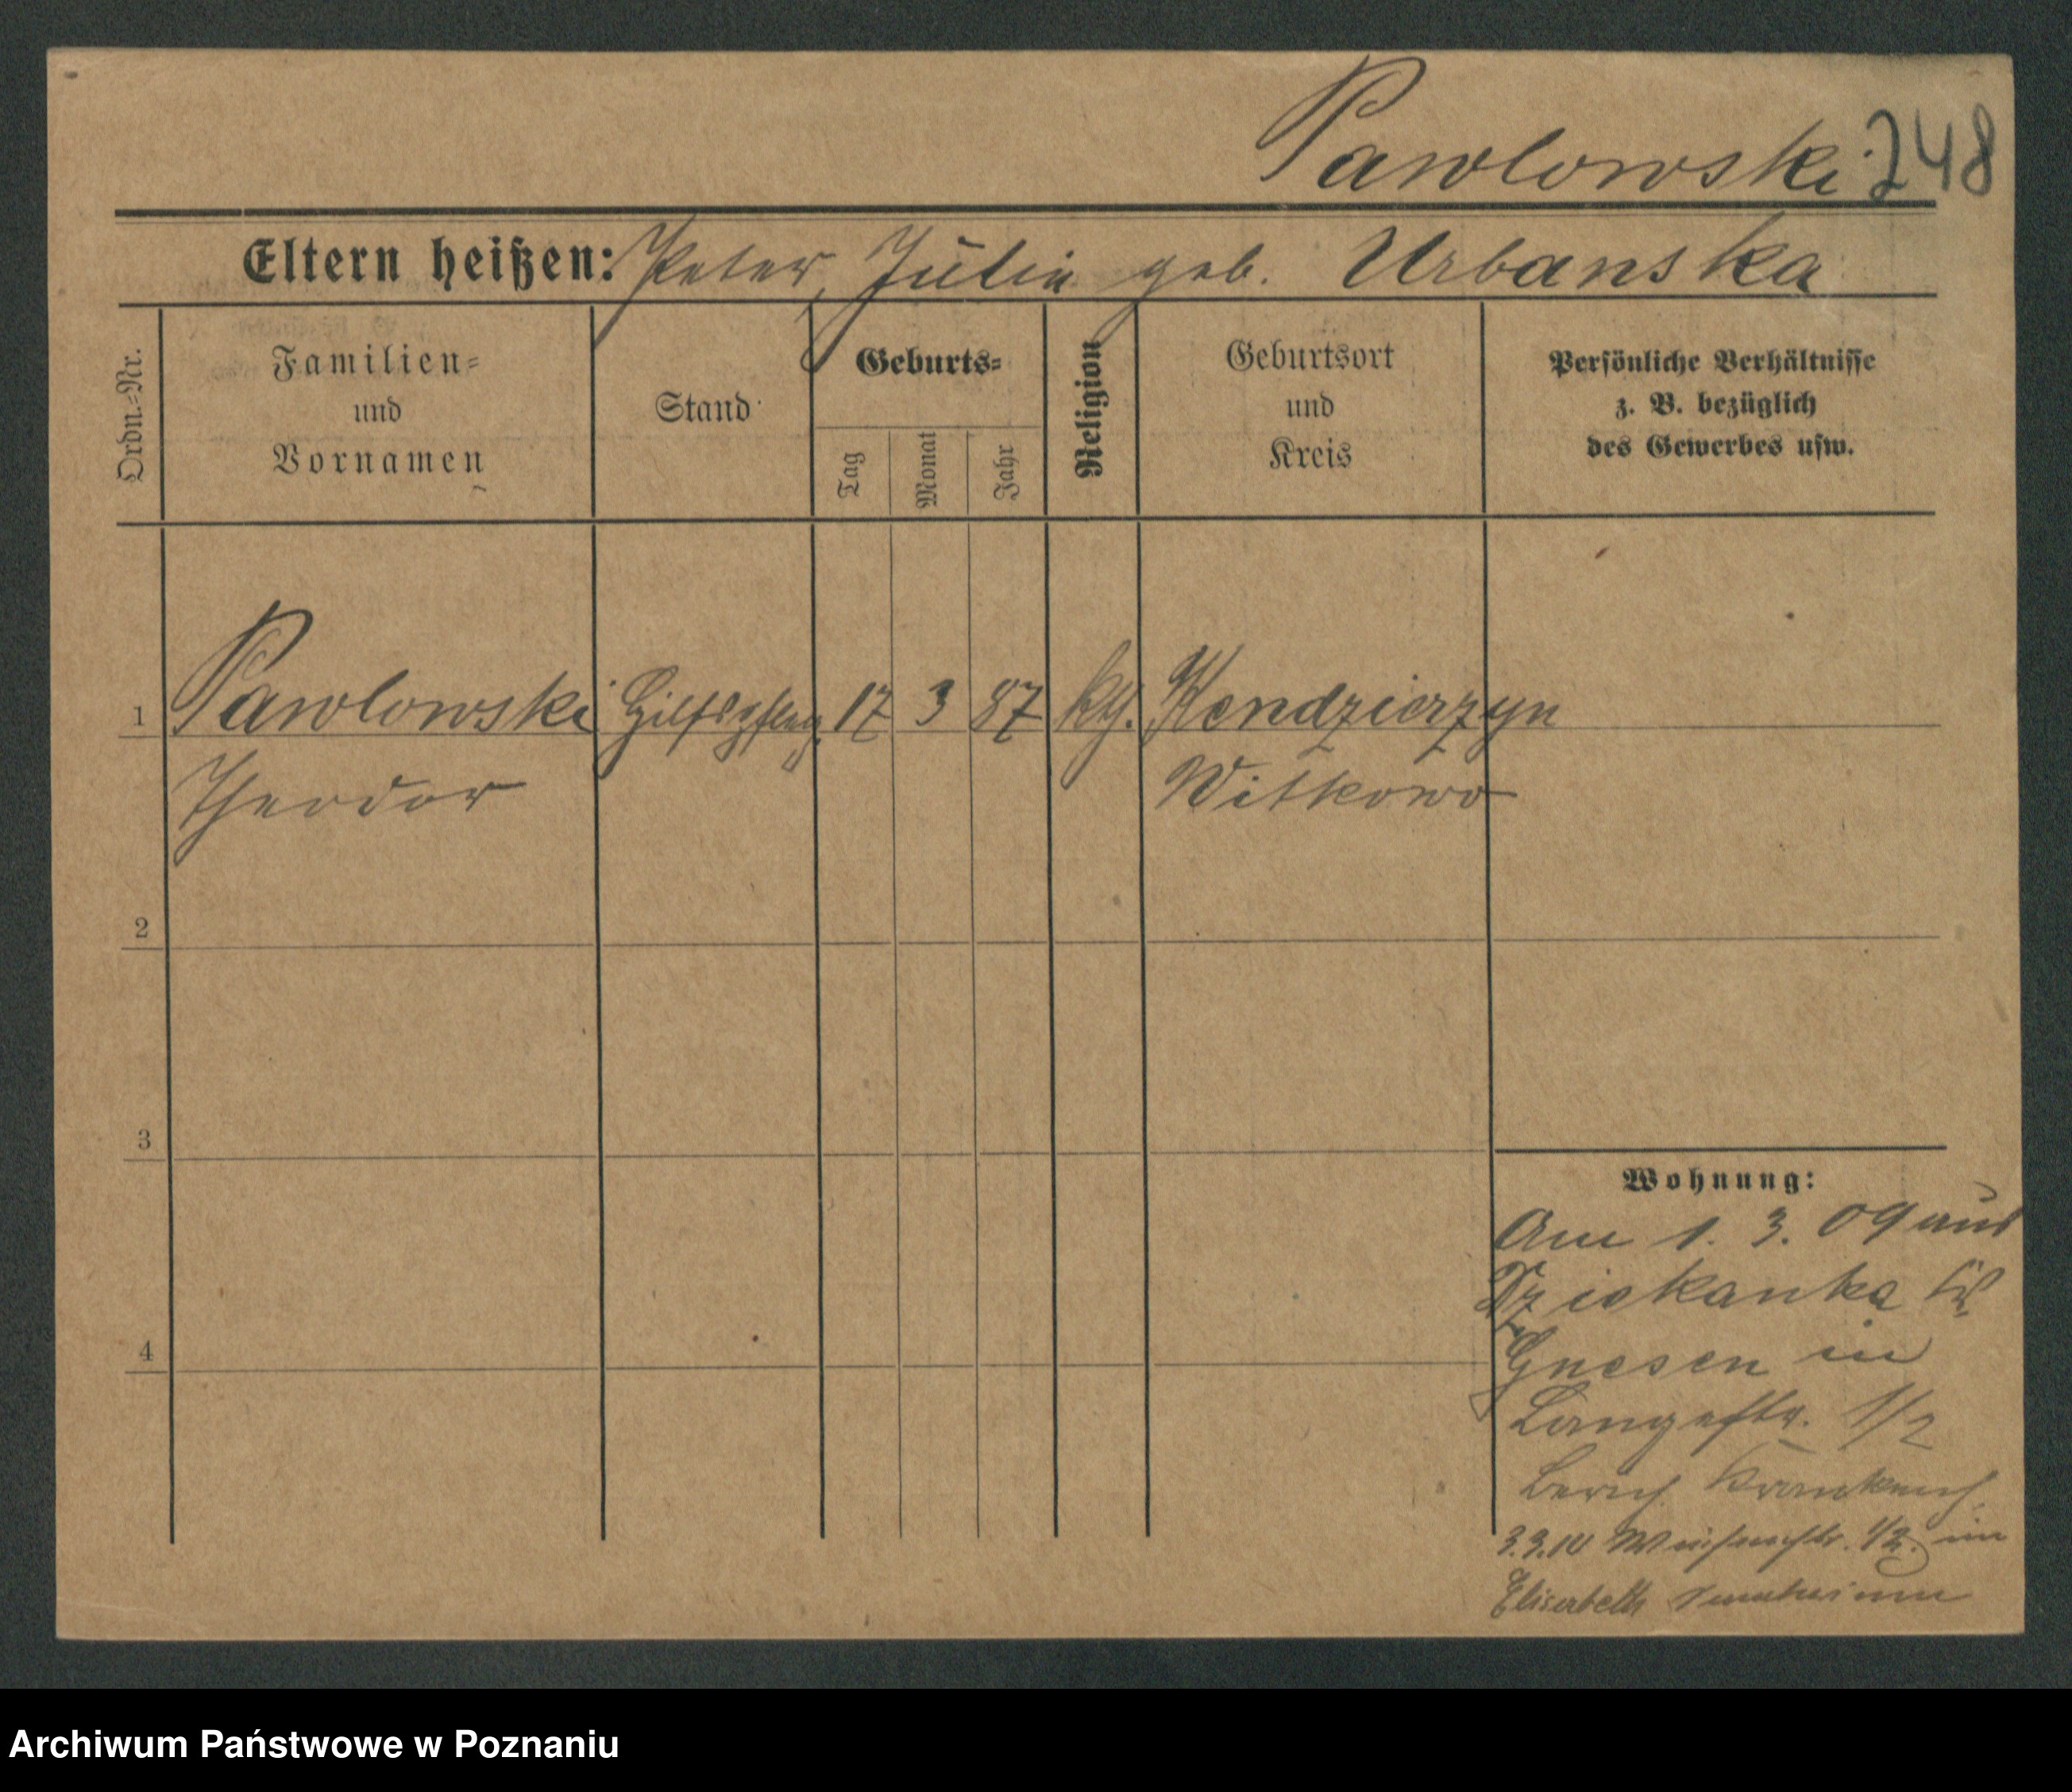 Pawlowski 248
Eltern heißen: Peter, Julia geb. Urbanska
Ordn.-Nr.
Familien-
und
Vornamen
Stand
Geburts-
Tag
Monat
Jahr
Religion
Geburtsort
und
Kreis
Persönliche Verhältnisse
z. B. bezüglich
des Gewerbes usw.
1 Pawlowski Hilfspfleg. 17 3 87 kth. Kendzierzyn
Theodor Witkowo
2
3
4
Wohnung:
Am 1. 3. 09 aus
Dziekanka
Gnesen in
Langestr. 1/2
3.3.10 1/2. im
Elisabeth Sanatorium
Archiwum Państwowe w Poznaniu